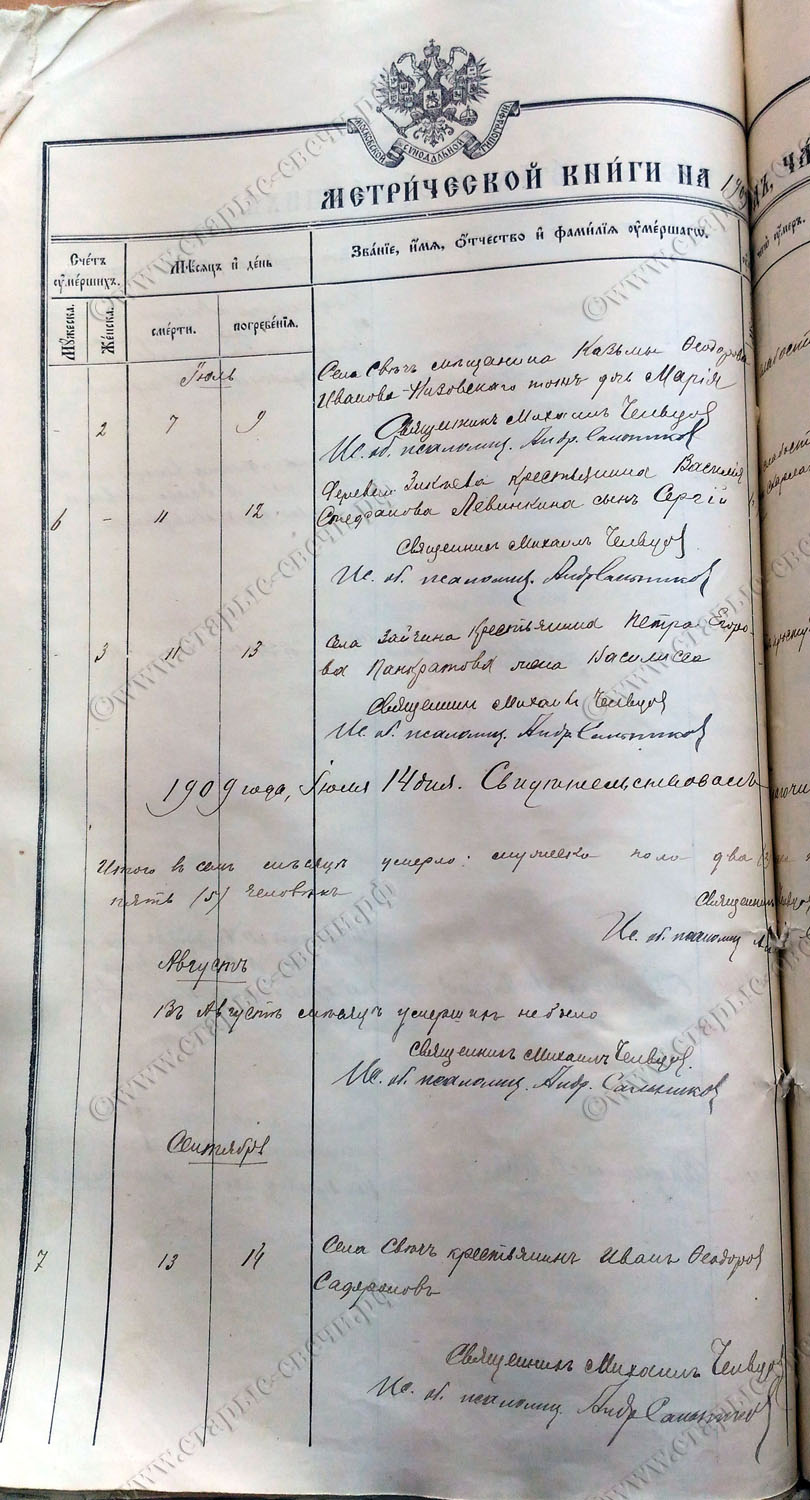 МОСКОВСКОЙ СѴНОДАЛЬНОЙ ТИПОГРАФІИ
МЕТРИ́ЧЕСКОЙ КНИ́ГИ НА 190
Сче́тъ ᲂу҆ме́ршихъ.
Мѣ́сяцъ и҆ де́нь
Зва́ніе, и҆́мя, ѻ҆́тчество и҆ фами́лія ᲂу҆ме́ршагѡ.
Мꙋ́жеска.
Же́нска.
сме́рти.
погребе́нія.
Іюль
- 2 7 9
Села Свючъ мѣщанина Казьмы Ѳеодорова
Иванова-Низовского дочь Марія
Священникъ Михаилъ Чельцов
Ис. об. псаломщ. Андр. Сальников
6 - 11 12
Деревни крестьянина Василія
Стефанова Левинкина сынъ Сергій
Священникъ Михаилъ Чельцов
Ис. об. псаломщ. Андр Сальников
- 3 11 13
Села Зайчина крестьянина Петра Егоро-
ва Панкратова жена Василисса
Священник Михаилъ Чельцов
Ис. об. псаломщ. Андр. Сальников
1909 года, Іюля 14 дня. Свидѣтельствовалъ
Итого в сем мѣсяцѣ умерло: мужеска пола два
пять (5) человѣкъ
Священник
Ис. об. псаломщ
Августъ
Въ Августѣ мѣсяцѣ умерших не было
Священникъ Михаилъ Чельцов.
Ис. об. псаломщ. Андр. Сальников
Сентябрь
7 13 14
Села Свючъ крестьянинъ Иванъ Ѳеодоров
Сафроновъ
Священникъ Михаилъ Чельцов
Ис. об. псаломщ. Андр Сальников
©www.старые-свечи.рф